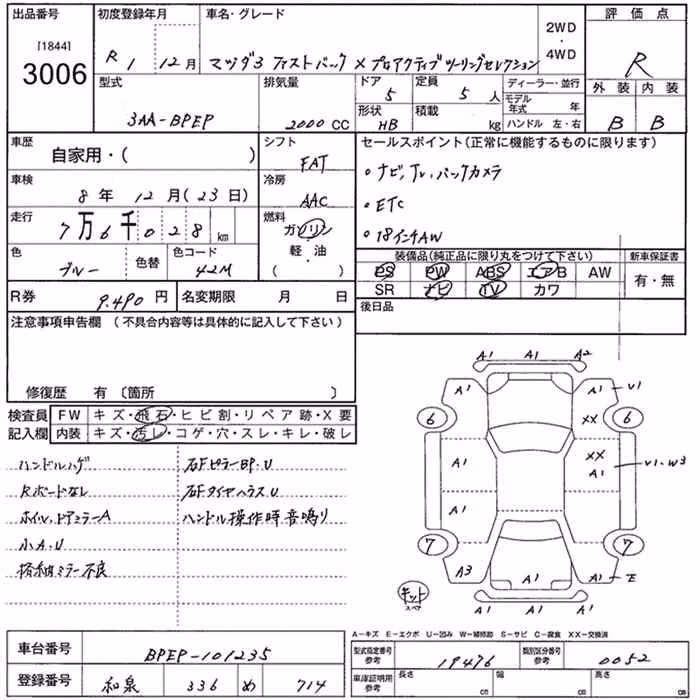 出品番号
[1844]
3006
初度登録年月
R 1 12月
車名・グレード
マツダ3 ファストバック X プロアクティブツーリングセレクション
2WD
・
4WD
評価点
R
外装 内装
B B
型式
3AA-BPEP
排気量
2000 CC
ドア
5
定員
5 人
形状
HB
積載
kg
ディーラー・並行
モデル年式 年
ハンドル 左・右
車歴
自家用・( )
シフト
FAT
車検
8年 12月(23日)
冷房
AAC
走行
7万6千028km
燃料
ガソリン
軽・油
( )
色
ブルー
色替
色コード
42M
R券
9.490円
名変期限 月 日
セールスポイント(正常に機能するものに限ります)
・ナビ,TV,バックカメラ
・ETC
・18インチAW
装備品(純正品に限り丸をつけて下さい)
PS PW ABS エアB AW
SR ナビ TV カワ
新車保証書
有・無
後日品
注意事項申告欄(不具合内容等は具体的に記入して下さい)
修復歴 有〔箇所 〕
検査員
記入欄
FW キズ・飛石・ヒビ割・リペア跡・X要
内装 キズ・汚レ・コゲ・穴・スレ・キレ・破レ
ハンドルハゲ
Rボードなし
ホイル,ドアミラーA
小A.U
格納ミラー不良
右FピラーBP.U
右FタイヤハウスU
ハンドル操作時音鳴り
A1 A1 A2
A1 A1 V1
6 XX 6
A1 XX A1 V1.W3
A1
7 7
A3 A1 A1 E
A1 A1 A1
キット
スペア
A-キズ E-エクボ U-凹み W-補修跡 S-サビ C-腐食 XX-交換済
車台番号
BPEP-101235
登録番号
和泉 336 め 714
型式指定番号
参考
19476
類別区分番号
参考
0052
車庫証明用
参考
長さ cm
幅 cm
高さ cm